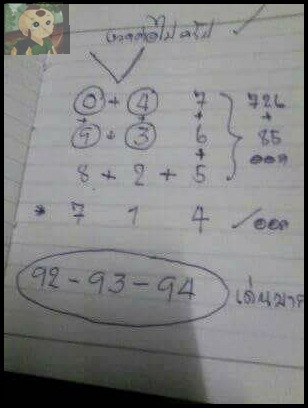 งวดต่อไปครับ ✓
0 + 4 7 } 726
+ + + +
9 + 3 6 85
+ ออก
8 + 2 + 5
* 7 1 4 ✓ออก
92 - 93 - 94 เด่นมาก